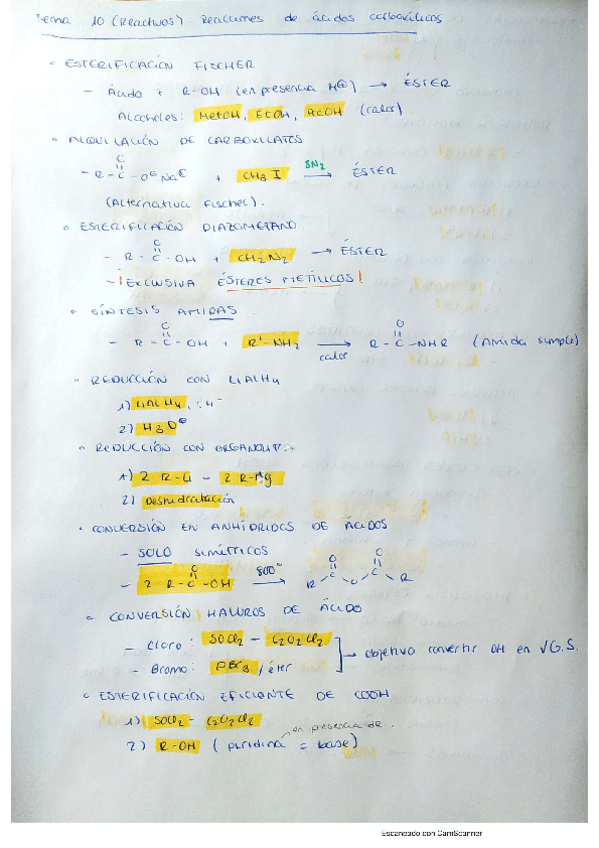 Tema 10 (Reactivos) Reacciones de ácidos carboxílicos
• ESTERIFICACIÓN FISCHER
- Ácido + R-OH (en presencia H⊕) → ÉSTER
Alcoholes: MetOH, EtOH, AcOH (calor)
• ALQUILACIÓN DE CARBOXILATOS
O
- R-C-O⊖Na⊕ + CH3 I SN2 → ÉSTER
(Alternativa Fischer).
• ESTERIFICACIÓN DIAZOMETANO
O
- R-C-OH + CH2N2 → ÉSTER
- ¡EXCLUSIVA ÉSTERES METÍLICOS!
• SÍNTESIS AMIDAS
O O
- R-C-OH + R'-NH2 → R-C-NHR (Amida simple)
calor
• REDUCCIÓN CON LiAlH4
1) LiAlH4, :H-
2) H3O⊕
• REDUCCIÓN CON ORGANOLIT..
1) 2 R-Li - 2 R-Mg
2) Deshidratación
• CONVERSIÓN EN ANHÍDRIDOS DE ÁCIDOS
- SOLO SIMÉTRICOS
O 800° O O
- 2 R-C-OH → R C O C R
• CONVERSIÓN HALUROS DE ÁCIDO
- Cloro: SOCl2 - C2O2Cl2
objetivo convertir OH en √G.S.
- Bromo: PBr3/éter
• ESTERIFICACIÓN EFICIENTE DE COOH
1) SOCl2 - C2O2Cl2
en presencia de.
2) R-OH (piridina = base)
Escaneado con CamScanner